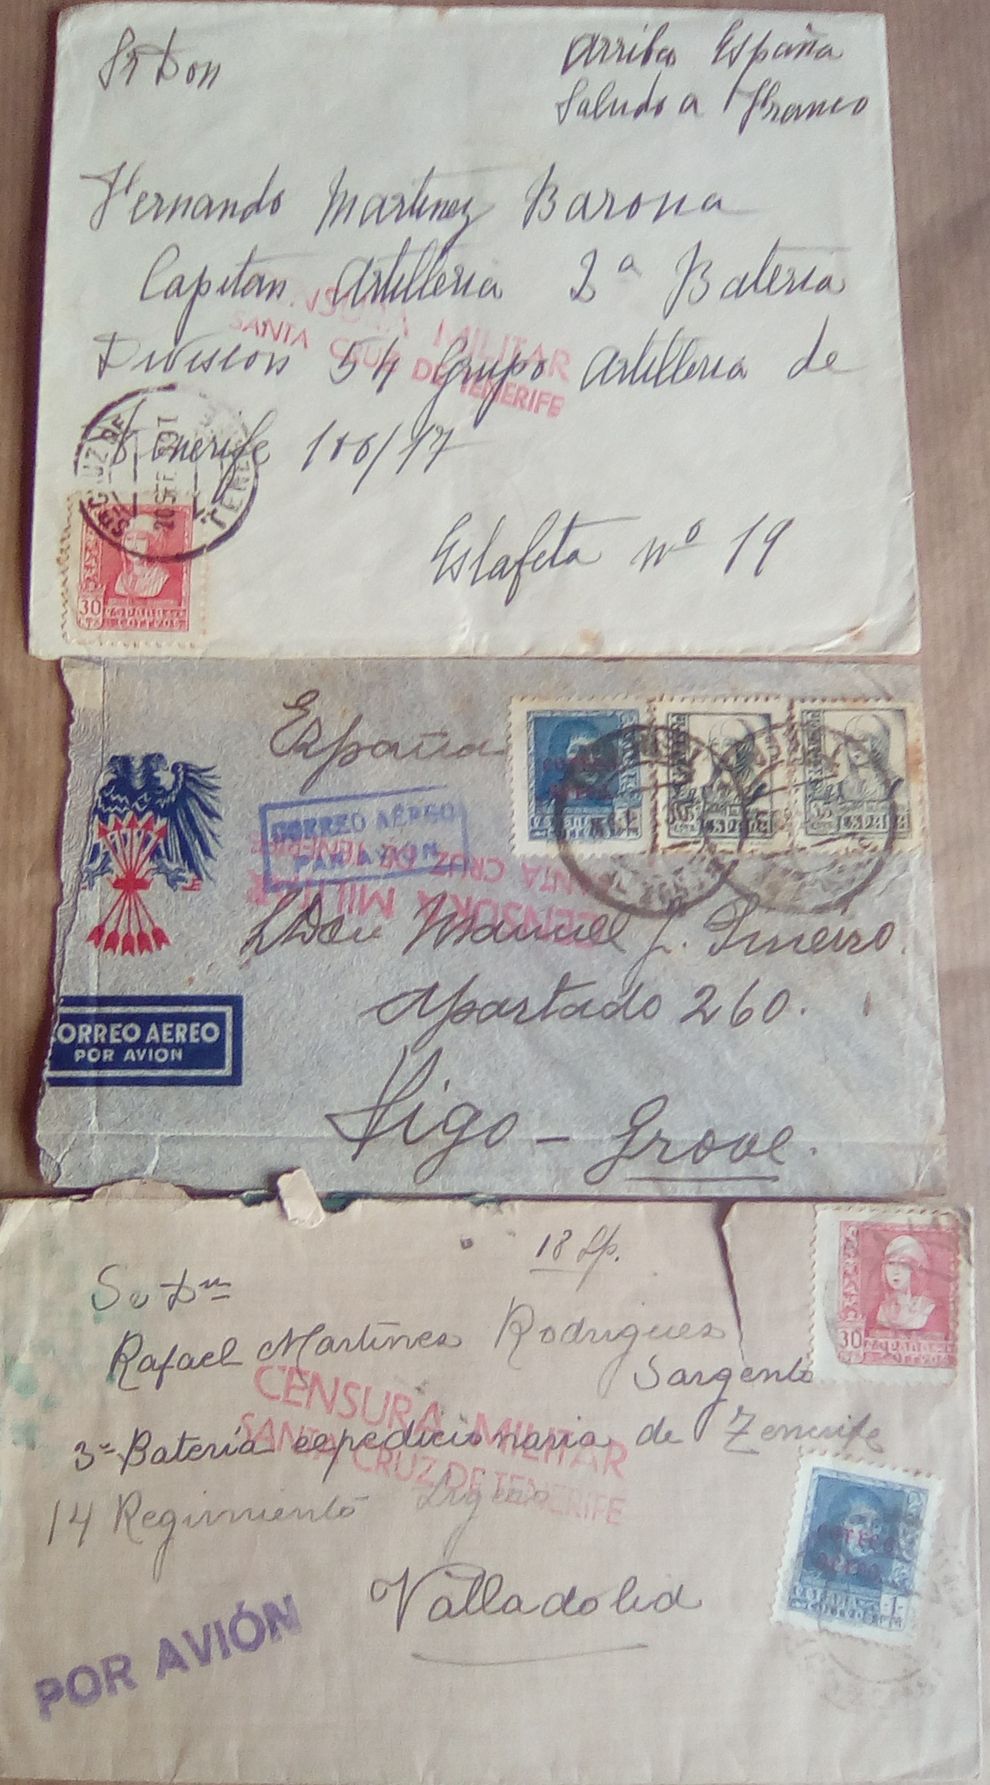 Sr Don
Arriba España
Saludo a Franco
Fernando Martinez Barona
Capitan Artilleria 2ª Bateria
Division 54 Grupo Artilleria de
Tenerife 100/17
Estafeta nº 19
CENSURA MILITAR
SANTA CRUZ DE TENERIFE
STA CRUZ DE TENERIFE
30
CTS
ESPAÑA
CORREOS
España
CORREO AÉREO
CENSURA MILITAR
SANTA CRUZ DE TENERIFE
CORREO AÉREO
ESPAÑA
ESPAÑA
Don Manuel L. Pineiro.
Apartado 260.
Vigo - Grove.
CORREO AEREO
POR AVION
18 Lp.
Sr Dn
Rafael Martines Rodrigues
Sargento
3ª Bateria eepedicionaria de Tenerife
14 Regimiento Ligero
Valladolid
CENSURA MILITAR
SANTA CRUZ DE TENERIFE
POR AVIÓN
30
ESPAÑA
CORREOS
CORREO
AÉREO